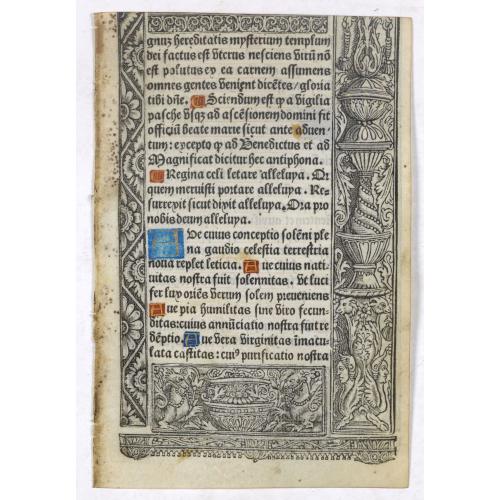 gnuz hereditatis mysterium templum
dei factus est vterus nesciens virū nō
est polutus ex ea carnem assumens
omnes gentes venient dicētes/ gloria
tibi dn̄e. Sciendum est q a vigilia
pasche vsqz ad ascēsionem domini fit
officiū beate marie sicut ante aduen
tum: excepto q ad Benedictus et ad
Magnificat dicitur hec antiphona.
Regina celi letare alleluya. Qr
quem meruisti portare alleluya. Re-
surrexit sicut dixit alleluya. Ora pro
nobis deum alleluya.
Aue cuius conceptio solēni ple
na gaudio celestia terrestria
noua replet leticia. Aue cuius nati
uitas nostra fuit solennitas. Vt luci
fer lux oriēs verum solem preueniens
Aue pia humilitas sine viro fecun
ditas: cuius annūciatio nostra fuit re
dēptio. Aue vera virginitas imacu
lata castitas: cuiꝰ purificatio nostra